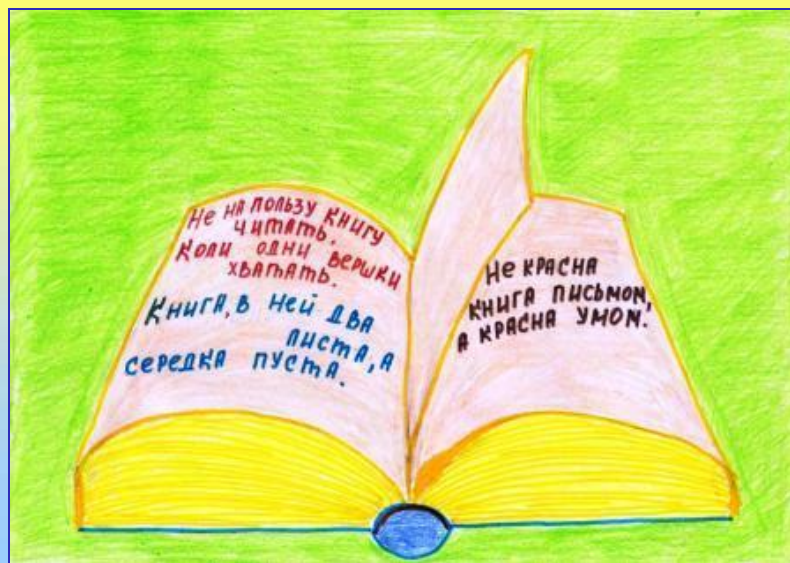 Не на пользу книгу
читать,
коли одни вершки
хватать.
Книга, в ней два
листа, а
середка пуста.
Не красна
книга письмом,
а красна умом.